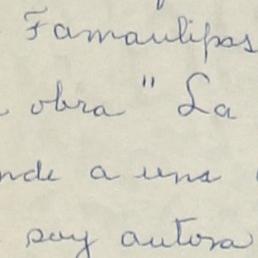 Tamaulipas
obra " La
nde a una
soy autora